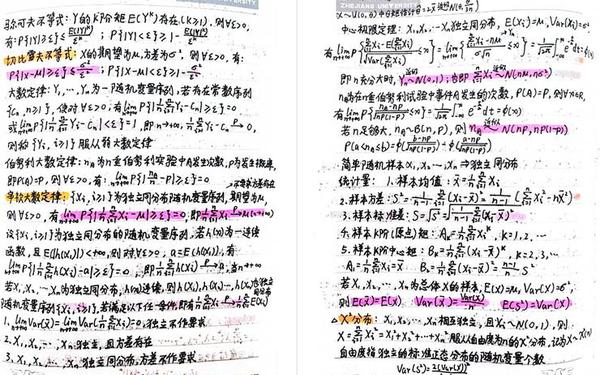 马尔可夫不等式: Y的k阶矩E(Y^k)存在(k≥1), 则∀ε>0,
有: P{|Y|≥ε}≤E(|Y|^k)/ε^k; P{|Y|<ε}≥1-E(|Y|^k)/ε^k
切比雪夫不等式: X的期望为μ, 方差为σ², 则∀ε>0, 有:
P{|X-μ|≥ε}≤σ²/ε²; P{|X-μ|<ε}≥1-σ²/ε²
大数定律: Y₁,…,Yₙ为一随机变量, 若存在常数序列
{Cₙ, n≥1}, 使对∀ε>0, 有lim n→∞ P{|1/n Σ Yᵢ-Cₙ|≥ε}=0
或 lim n→∞ P{|1/n Σ Yᵢ-Cₙ|<ε}=1, 即n→+∞, 1/n Σ Yᵢ-Cₙ →P 0,
则称{Yᵢ, i≥1}服从弱大数定律
伯努利大数定律: n_A为n重伯努利实验中A发生次数, p为发生概率,
即P(A)=P, 则∀ε>0, 有: lim n→∞ P{|n_A/n-P|≥ε}=0
不要求方差存在
辛钦大数定律: {Xᵢ, i≥1}为独立同分布随机变量序列, 期望为μ,
则∀ε>0, 有 lim n→∞ P{|1/n Σ Xᵢ-μ|≥ε}=0, 即 1/n Σ Xᵢ →P μ (n→+∞)
设{Xᵢ, i≥1}为独立同分布的随机变量序列, 若h(x)为一连续
函数, 且E(|h(X₁)|)<+∞, 则对∀ε>0, a=E(h(X₁)), 有
lim n→∞ P{|1/n Σ h(Xᵢ)-a|≥ε}=0, 即 1/n Σ h(Xᵢ) →P a, 当n→+∞
若X₁, X₂, …, Xₙ为独立同分布, h(x)连续, 则h(X₁), h(X₂)…h(Xₙ)也独立同分布
随机变量序列{Xᵢ, i≥1}, 若满足以下任一条件, 即有 1/n Σ Xᵢ →P 1/n Σ E(Xᵢ)
1. lim n→∞ Var(X̄)=lim n→∞ Var(1/n Σ Xᵢ)=0, 独立不作要求
2. X₁, X₂, …, Xₙ独立, 且方差存在
3. X₁, X₂, …, Xₙ独立同分布, 方差不作要求
ZHEJIANG UNIVERSITY
中心极限定理: X₁, X₂…Xₙ独立同分布, E(Xᵢ)=μ, Var(Xᵢ)=σ²
有 lim n→∞ P{(Σ Xᵢ-E(Σ Xᵢ))/√Var(Σ Xᵢ)≤x}=lim n→∞ P{(Σ Xᵢ-nμ)/(√n σ)≤x}=1/√2π ∫ e^(-t²/2) dt=φ(x)
即n充分大时, Yₙ 近似~ N(0,1); 当即 Σ Xᵢ 近似~ N(nμ, nσ²)
n_A为在n重伯努利试验中事件A发生的次数, P(A)=P, 则∀x∈R,
有 lim n→∞ P{(n_A-np)/√np(1-p)≤x}=1/√2π ∫ e^(-t²/2) dt=φ(x)
若n足够大, n_A~B(n,p), 则 n_A 近似~ N(np, np(1-p))
P(a<n_A≤b)=φ((b-np)/√np(1-p))-φ((a-np)/√np(1-p))
简单随机样本 X₁, X₂, …, Xₙ ⇒ 独立同分布
统计量: 1. 样本均值: x̄=1/n Σ Xᵢ
2. 样本方差: S²=1/(n-1) Σ (Xᵢ-X̄)²=1/(n-1) (Σ Xᵢ²-nX̄²)
3. 样本标准差: S=√S²=√(1/(n-1) Σ (Xᵢ-X̄)²)
4. 样本k阶(原点)矩: Aₖ=1/n Σ Xᵢ^k, k=1,2,…
5. 样本k阶中心矩: Bₖ=1/n Σ (Xᵢ-X̄)^k, k=2,3,…
A₁=1/n Σ Xᵢ=X̄ B₂=1/n Σ (Xᵢ-X̄)²=(n-1)/n S²
若X₁, X₂, …, Xₙ为总体X的样本, E(X)=μ, Var(X)=σ²,
则 E(X̄)=E(X) Var(X̄)=Var(X)/n E(S²)=Var(X)
△ χ²分布: X₁, X₂, …, Xₙ相互独立, 且Xᵢ~N(0,1), 则
X=Σ Xᵢ²=X₁²+X₂²+…+Xₙ²服从自由度为n的χ²分布, 记为X~χ²(n)
自由度指独立的标准正态分布的随机变量个数